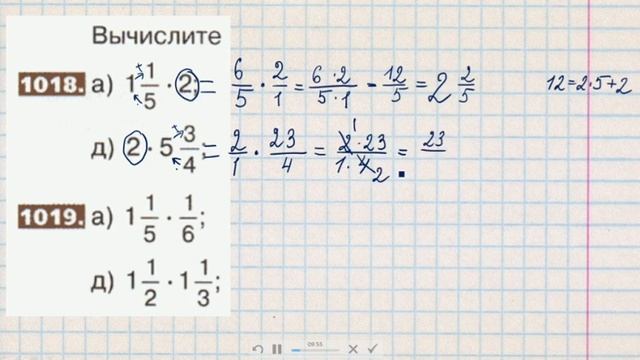 Вычислите
1018. а) 1 1/5 · 2; = 6/5 · 2/1 = 6·2/5·1 - 12/5 = 2 2/5 12=2·5+2
д) 2 · 5 3/4; = 2/1 · 23/4 = 2·23/1·4 1 2 = 23
1019. а) 1 1/5 · 1/6;
д) 1 1/2 · 1 1/3;
09:55